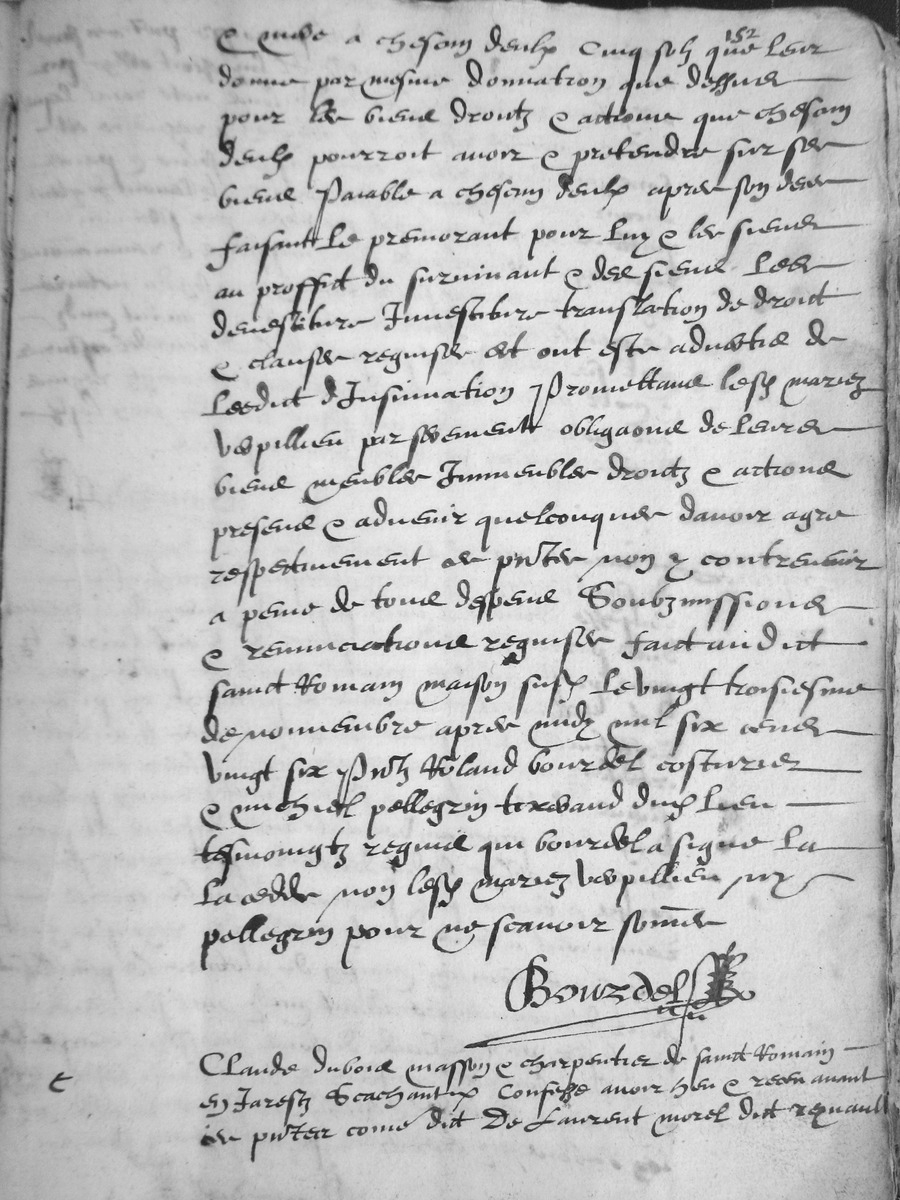 152
& a chescun deulx cinq solz que leur
donne par mesme donnation que dessus
pour les biens droictz & actions que chescun
deulx pourroit avoir & pretendre sur ses
biens Paiable a chescun deulx apres son deces
faisant le premorant pour luy & les siens
au proffict du survivant & des siens Les
devestiture Investiture translation de droict
& clauses requises et ont este advertis de
Leedict dInsinuation Promettans lesd mariez
vespillieu par serement obligaons de leurs
biens meubles Immeubles droictz & actions
presens & advenir quelconques davoir agre
respectivement ces pntes non y contrevenir
a peine de tous despens Soubzmissions
& renunciations requises faict audict
sainct Romain maison susd Le vingt troisiesme
de novembre apres midy mil six cens
vingt six Pntz Roland bourdel costurier
& michiel pellegrin dud lieu
tesmoingtz requis qui bourdel a signe La
La cedde non lesd mariez vespillieu ny
pellegrin pour ne scavoir somes
Bourdel
Claude dubois masson & charpentier de sainct Romain
en Jarestz Scachant Confesse avoir heu & receu avant
ces pntes come dict De Laurent morel dict